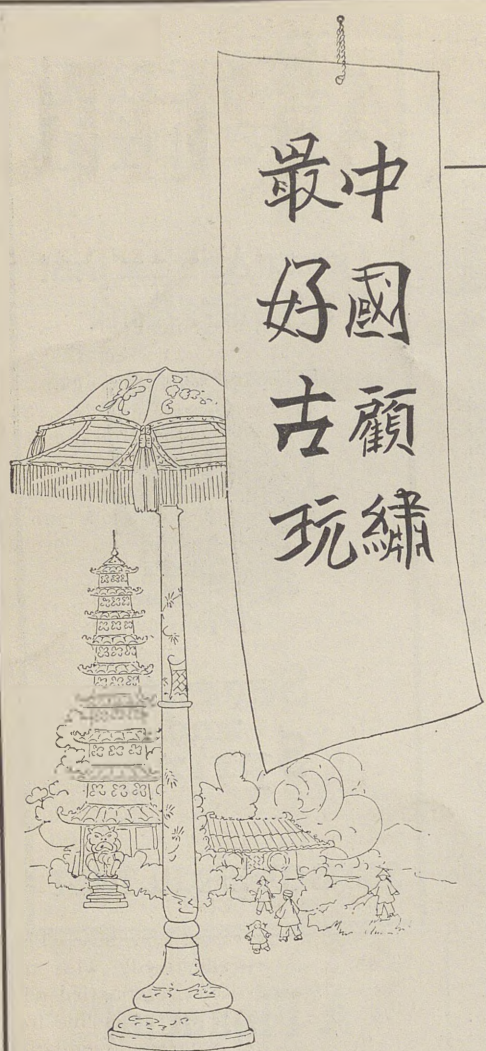 中國顧繡
最好古玩